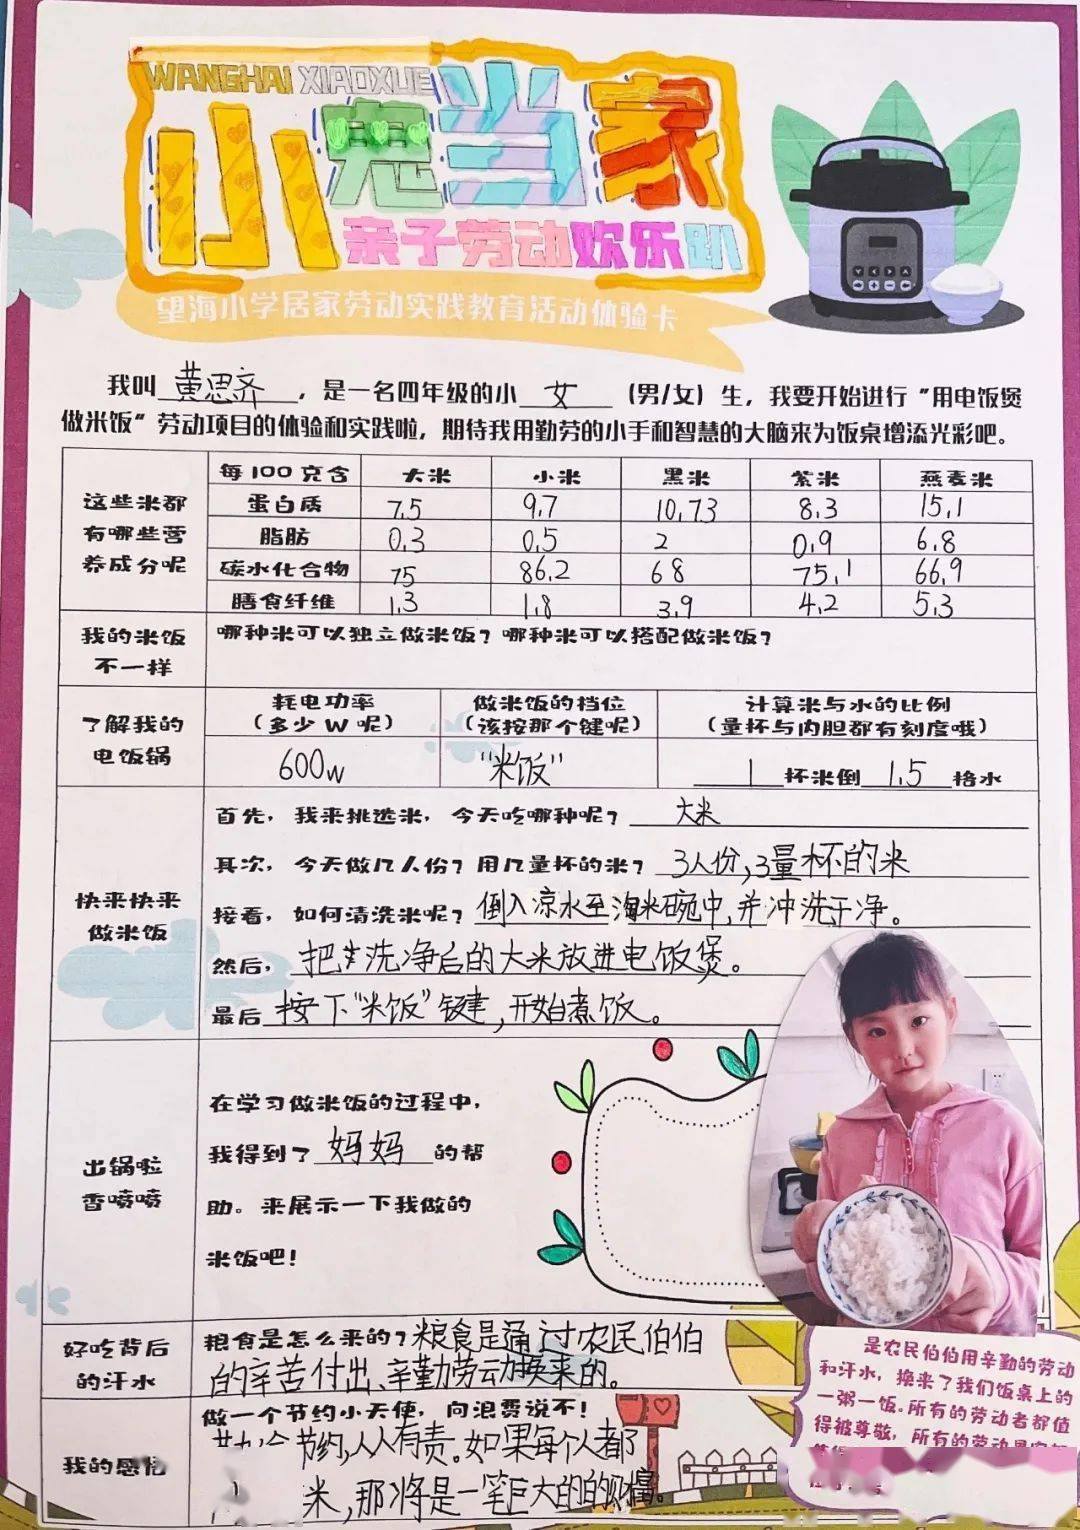 WANGHAI XIAOXUE
小鬼当家
亲子劳动欢乐趴
望海小学居家劳动实践教育活动体验卡
我叫 黄思齐 ，是一名四年级的小 女 （男/女）生，我要开始进行“用电饭煲
做米饭”劳动项目的体验和实践啦，期待我用勤劳的小手和智慧的大脑来为饭桌增添光彩吧。
这些米都有哪些营养成分呢
每100克含 大米 小米 黑米 紫米 燕麦米
蛋白质 7.5 9.7 10.73 8.3 15.1
脂肪 0.3 0.5 2 0.9 6.8
碳水化合物 75 86.2 68 75.1 66.9
膳食纤维 1.3 1.8 3.9 4.2 5.3
我的米饭不一样
哪种米可以独立做米饭？哪种米可以搭配做米饭？
了解我的电饭锅
耗电功率 做米饭的档位 计算米与水的比例
（多少W呢） （该按那个键呢） （量杯与内胆都有刻度哦）
600w “米饭” 1 杯米倒 1.5 格水
快来快来做米饭
首先，我来挑选米，今天吃哪种呢？ 大米
其次，今天做几人份？用几量杯的米？ 3人份，3量杯的米
接着，如何清洗米呢？ 倒入凉水至淘米碗中，并冲洗干净。
然后， 把洗净后的大米放进电饭煲。
最后 按下“米饭”键，开始煮饭。
出锅啦香喷喷
在学习做米饭的过程中，
我得到了 妈妈 的帮
助。来展示一下我做的
米饭吧！
好吃背后的汗水
粮食是怎么来的？粮食是通过农民伯伯
的辛苦付出、辛勤劳动换来的。
我的感悟
做一个节约小天使，向浪费说不！
节约，人人有责。如果每个人都
米，那将是一笔巨大的的财富。
是农民伯伯用辛勤的劳动
和汗水，换来了我们饭桌上的
一粥一饭。所有的劳动者都值
得被尊敬，所有的劳动